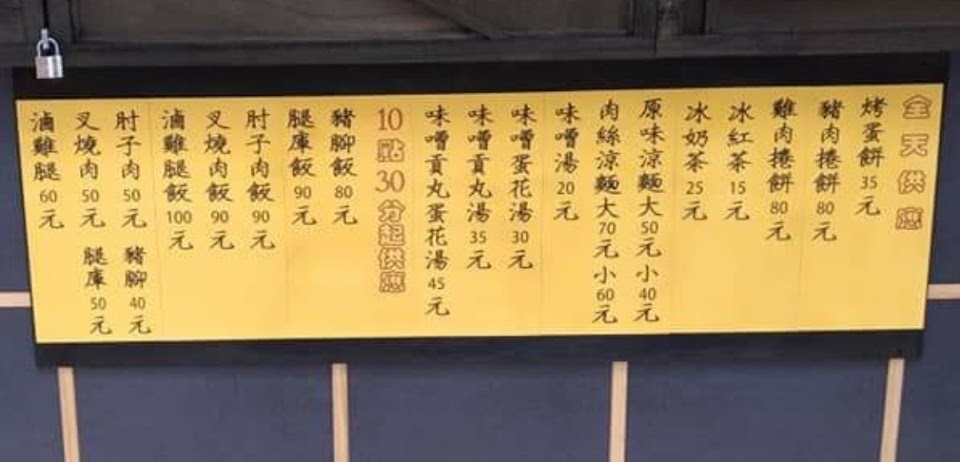 全天供應
烤蛋餅35元
豬肉捲餅80元
雞肉捲餅80元
冰紅茶15元
冰奶茶25元
原味涼麵大50元小40元
肉絲涼麵大70元小60元
味噌湯20元
味噌蛋花湯30元
味噌貢丸湯35元
味噌貢丸蛋花湯45元
10點30分起供應
豬腳飯80元
腿庫飯90元
肘子肉飯90元
叉燒肉飯90元
滷雞腿飯100元
肘子肉50元
豬腳40元
叉燒肉50元
腿庫50元
滷雞腿60元